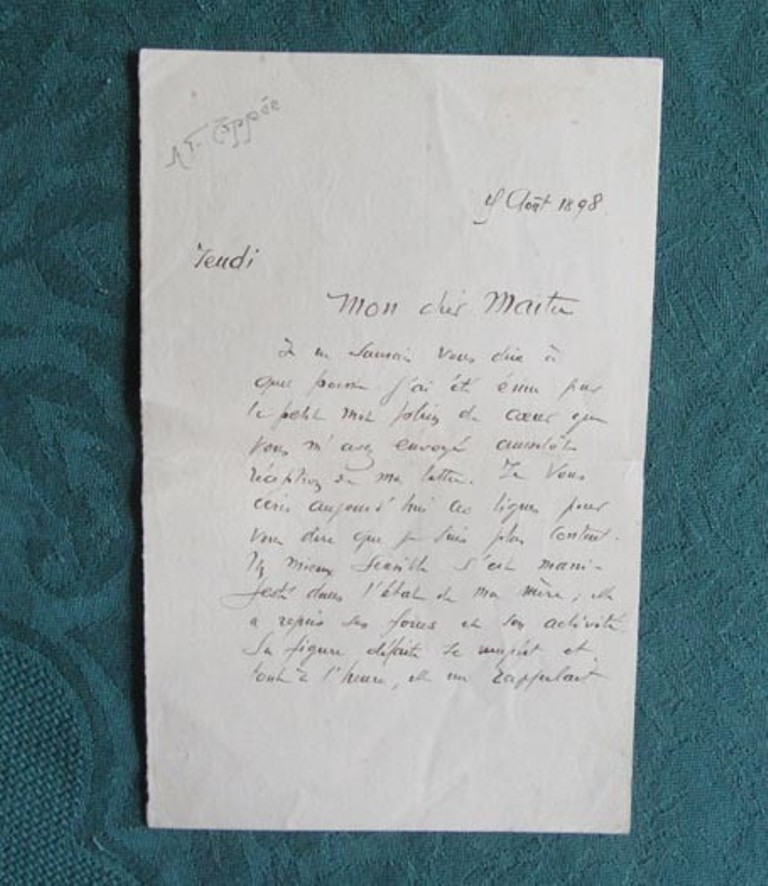 Coppée
Août 1898
Jeudi
Mon cher Maitre
Je ne saurais vous dire à
quel point j'ai été ému par
le petit mot plein de cœur que
vous m'avez envoyé aussitôt
réception de ma lettre. Je vous
écris aujourd'hui ces lignes pour
vous dire que je suis plus content.
Un mieux sensible s'est mani-
festé dans l'état de ma mère ; elle
a repris ses forces et son activité.
Sa figure défaite se remplit et
tout à l'heure, elle me rappelait